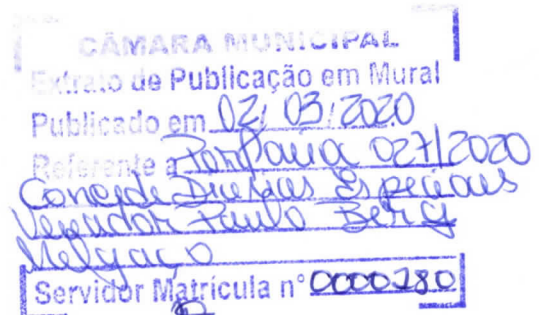 CÂMARA MUNICIPAL
Extrato de Publicação em Mural
Publicado em 02/03/2020
Referente a Portaria 027/2020
Concede Diárias Especiais
Vereador Paulo Berg
Melgaço
Servidor Matrícula nº 0000280